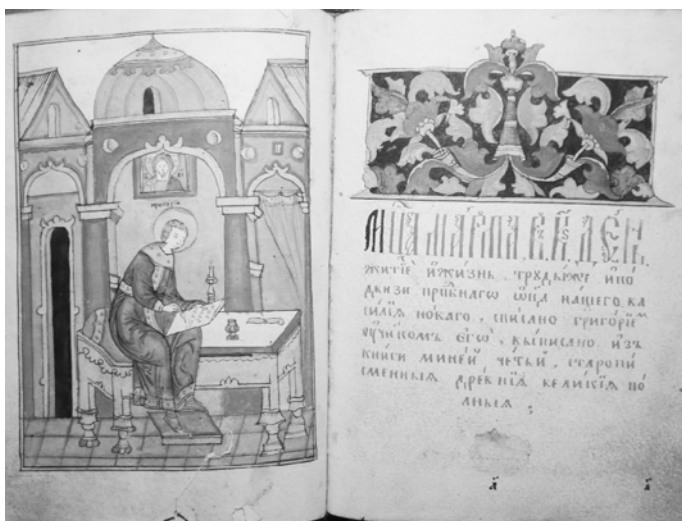 григорїй
мцⷭ҇а марта въ к҃ѕ де́нь.
житїѐ и҆жи́знь. трꙋды́же и҆по
дви́зи прпⷣбнагѡ ѻ҆ц҃а̀ на́шегѡ ва
си́лїѧ но́ваго, спи́сано григо́рїемъ
ᲂу҆ченико́мъ є҆гѡ̀, вы́писано и҆зъ
кни́ги мине́й че́тьи, старопи
сменныѧ дре́внїѧ вели́кїѧ по́
лныѧ ;